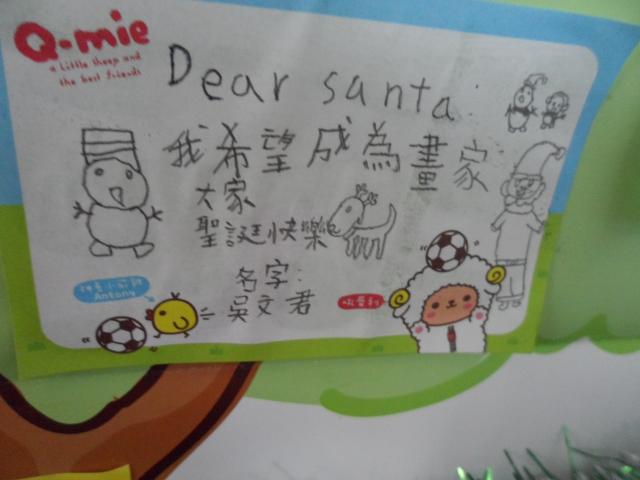 Q-mie
a little sheep and
the best friends
Dear santa
我希望成為畫家
大家
聖誕快樂
名字:
吳文君
Antony